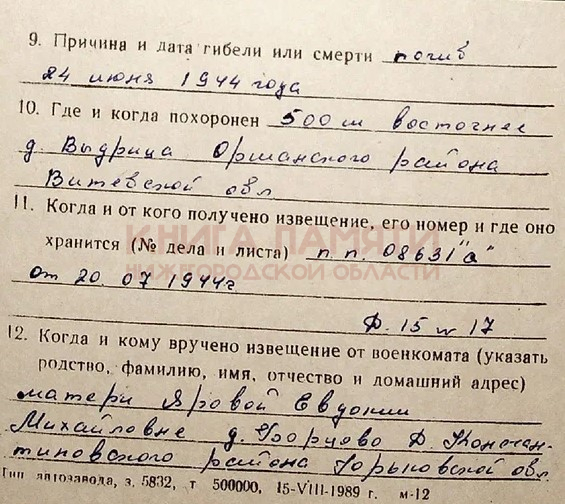 9. Причина и дата гибели или смерти погиб
24 июня 1944 года
10. Где и когда похоронен 500 м восточнее
д. Выдрица Оршанского района
Витебской обл
11. Когда и от кого получено извещение, его номер и где оно
КНИГА ПАМЯТИ
хранится (№ дела и листа) п.п. 08631 "а"
НИЖЕГОРОДСКОЙ ОБЛАСТИ
от 20.07 1944г
Д. 15 л 17
12. Когда и кому вручено извещение от военкомата (указать
родство, фамилию, имя, отчество и домашний адрес)
матери Яровой Евдокии
Михайловне д.
района Горьковской обл.
Тип. автозавода, з. 5832, т 500000, 15-VIII-1989 г. м-12